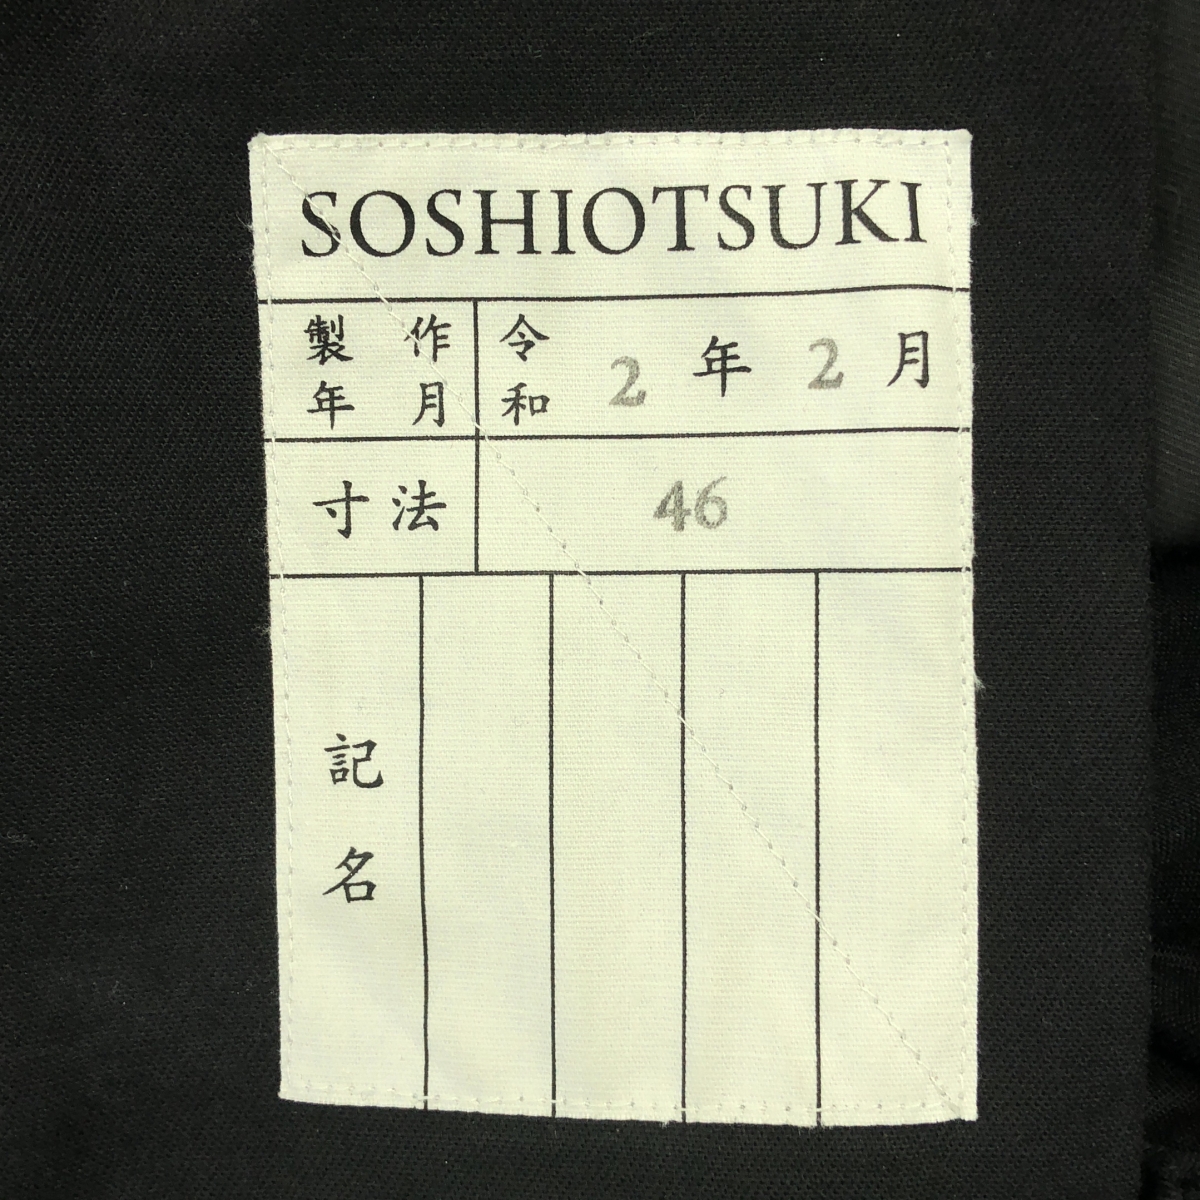 SOSHIOTSUKI
製作年月 令和2年2月
寸法 46
記名